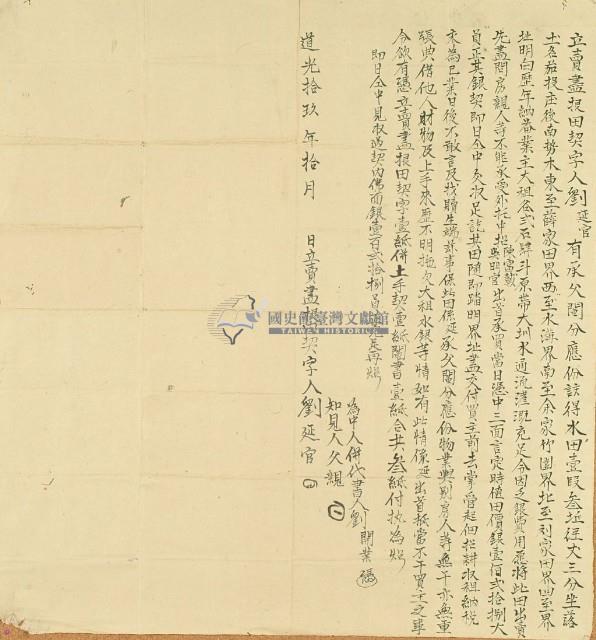 立賣盡根田契字人劉延官有承父鬮分應份該得水田壹段叁坵徑丈三分坐落
土名茄投庄後南勢東至薛家田界西至水溝界南至余家竹圍界北至刘家田界四至界
址明白歷年納業主大租谷弍石肆斗原帶大圳水通流灌溉充足今因乏銀費用愿將此田出賣
先盡問房親人等不能承受外托中招陳富吳明官出首承買當日憑中三面言定時值田價銀壹佰弍拾捌大
員正其銀契即日仝中交收足訖其田隨即踏明界址盡交付買主前去掌管起佃招耕收租納稅
永為己業日後不敢言及找贖生端滋事保此田係延承父鬮分應份物業與別房人等無干亦無重
張典借他人財物及上手來歷不明拖欠大租水銀等情如有此情係延出首抵當不干買主之事
今欲有憑立賣盡根田契字壹紙併上手契壹紙鬮書壹紙合共叁紙付执為炤
即日仝中見收過契內佛面銀壹百弍拾捌員足再炤
為中人併代書人劉開業
知見人父親
道光拾玖年拾月 日立賣盡根契字人劉延官
國史館臺灣文獻館
TAIWAN HISTORICA